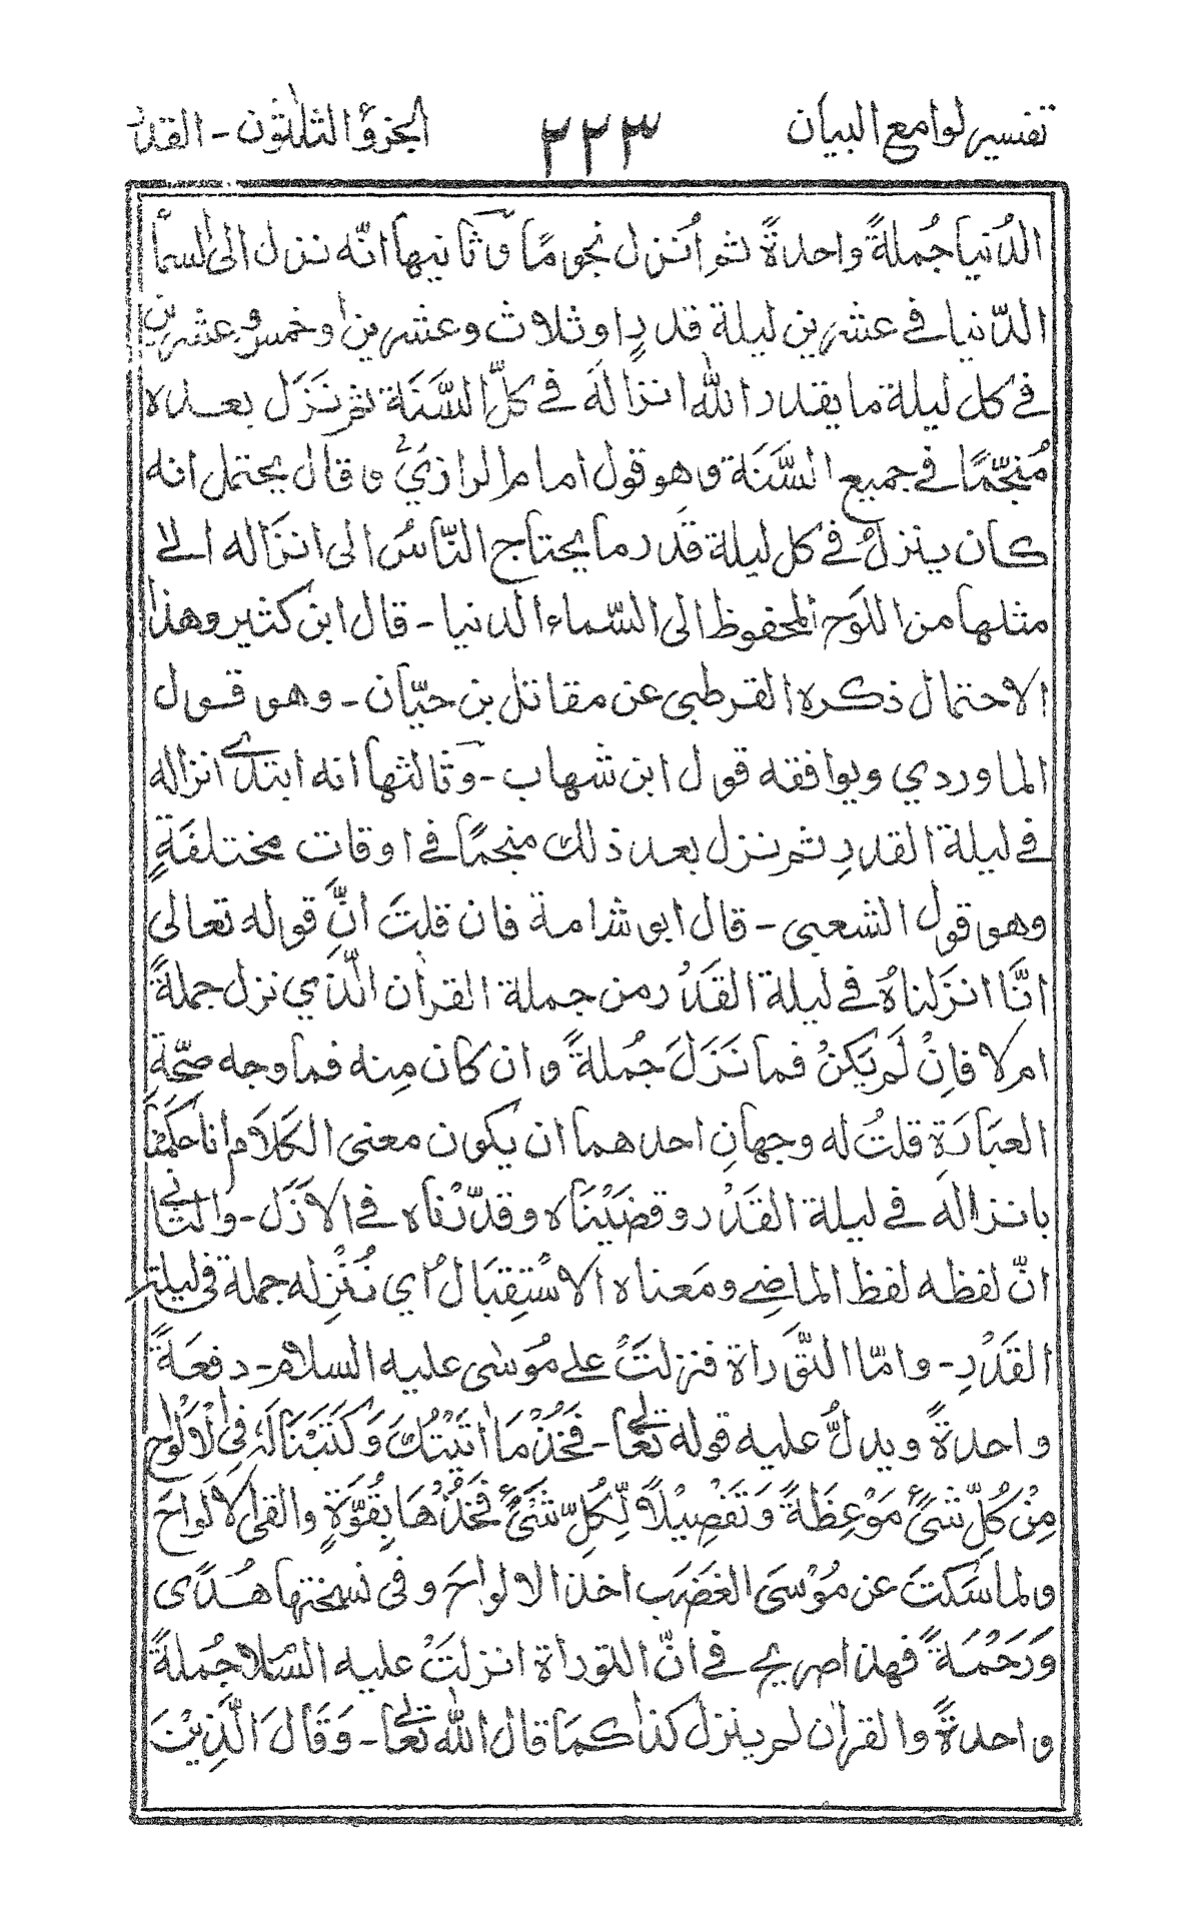 تفسير لوامع البيان ٢٢٣ الجزؤ الثلثون - القدر
الدُنيا جُملةً واحدةً ثم اُنزل نجومًا وثانيها انّه نزل الى السمآ
الدّنيا في عشرين ليلة قدرٍ او ثلاث وعشرين او خمس وعشرين
في كل ليلة ما يقدر الله انزالَه في كلِّ السَّنَة ثم نَزَل بعده
مُنجّمًا في جميع السَّنَة وهو قول امام الرازيؒ وقال يحتمل انه
كان ينزلُ في كل ليلة قَدر ما يحتاج النّاسُ الى انزَاله الى
مثلها من اللوَح المحفوظ الى السّماء الدنيا - قال ابن كثير وهذا
الاحتمال ذكره القرطبي عن مقاتل بن حيّان - وهو قول
الماوردي ويوافقه قول ابن شهاب - وثالثها انه ابتدئ انزاله
في ليلة القدرِ ثم نزل بعد ذلك منجمًا في اوقات مختلفَةٍ
وهو قول الشعبي - قال ابو شامة فان قلتَ انَّ قوله تعالى
انَّا انزَلناهُ في ليلة القَدْر من جملة القراٰن الّذي نزل جملةً
ام لا فاِنْ لَم يَكنْ فما نَزَلَ جُملةً وان كان مِنه فما وجه صحّةِ
العبَارَةِ قلتُ له وجهانِ احدهما ان يكون معنى الكلاَم انا حَكَمْنَا
بانزالَه في ليلة القَدْر وقضَيْنَاه وقدّرْنَاه في الازَل - والثاني
انّ لفظه لفظ الماضِي ومَعناه الاسْتِقبَالُ اي نُنْزِله جملة في ليلة
القَدْرِ - وامّا التَّوراة فنزلتْ على مُوسٰى عليه السلام - دفعَةً
واحدةً ويدلُّ عليه قوله تعالى - فَخُذْ مَا اٰتَيْتُكَ وَكَتَبْنَا لَهٗ فِى الْاَلْوَاحِ
مِنْ كُلِّ شَىْءٍ مَوْعِظَةً وَتَفْصِيْلًا لِّكُلِّ شَىْءٍ فَخُذْهَا بِقُوَّةٍ والقى الاَلوَاحَ
ولما سَكتَ عن مُوْسَى الغضَب اخذ الالواحَ وفى نسختها هُدًى
وَرَحْمَةً فهذا صريح في انّ التوراة انزلتْ عليه السّلام جُملةً
واحدةً والقراٰن لم ينزل كذا كمَا قال اللّٰه تعالى - وَقَالَ الَّذِيْنَ